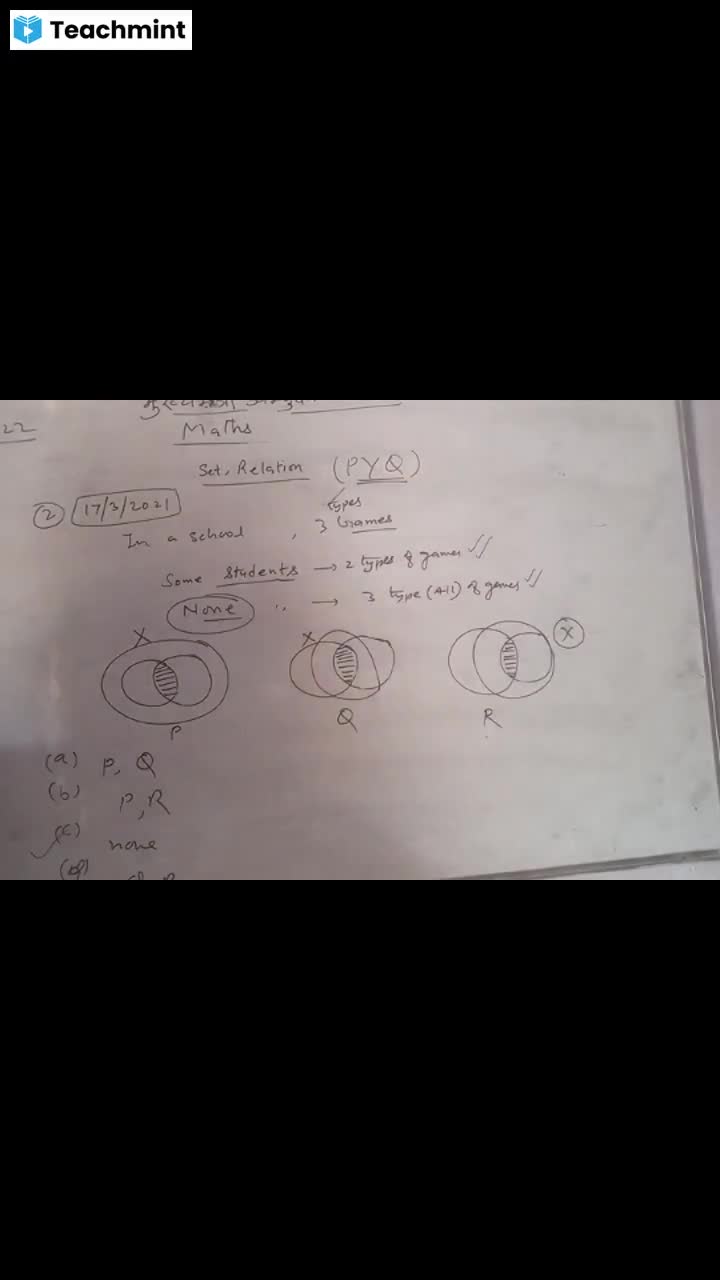 Teachmint
22
Maths
Set, Relation (PYQ)
② 17/3/2021
types
In a school , 3 Games
Some students → 2 types of games ✓✓
None ,, → 3 type (All) of games ✓✓
X X X
P Q R
(a) P, Q
(b) P, R
(c) none